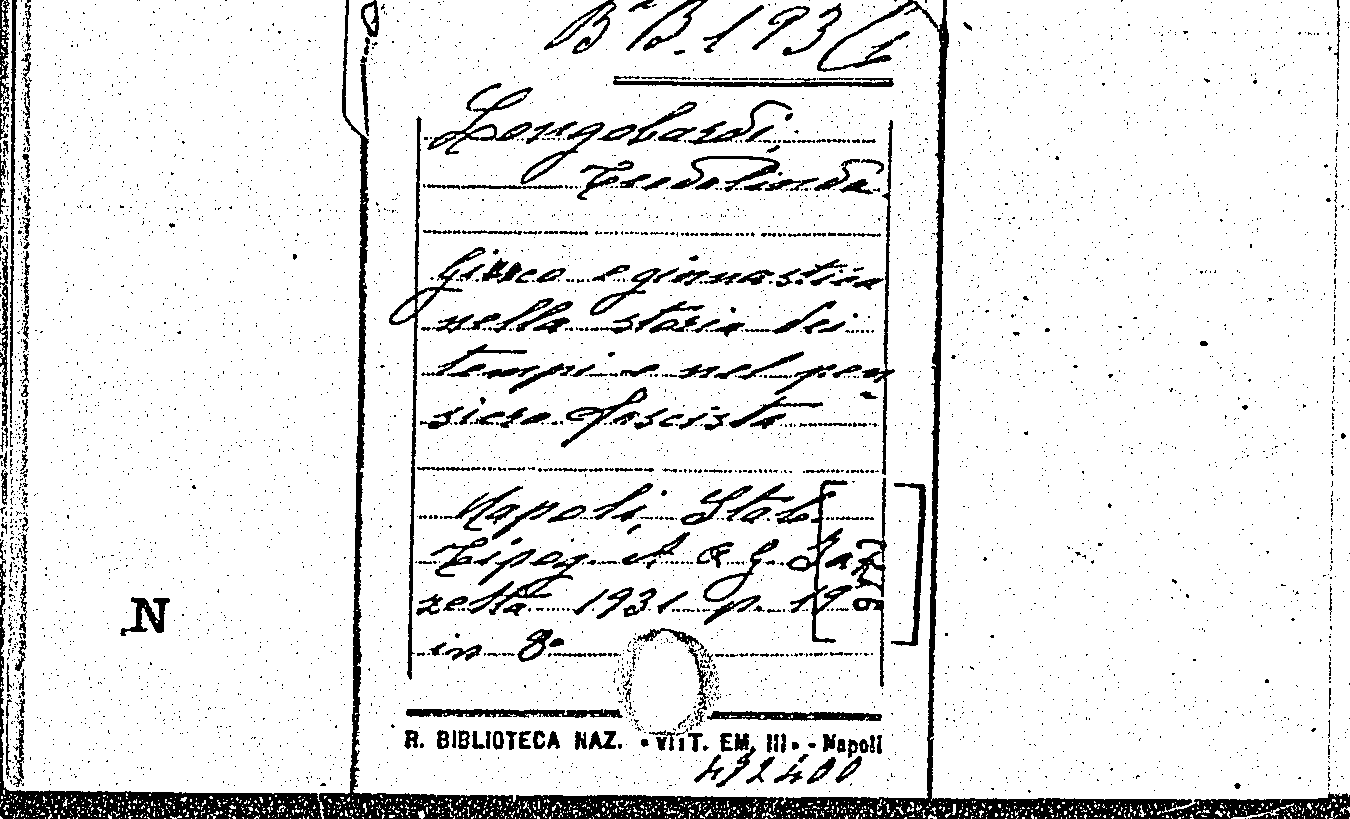 Bª B. 193 (1
Longobardi,
Teodolinda.
Giuoco e ginnastica
nella storia dei
tempi e nel pen
siero fascista
Napoli, Stab.
Tipog. A & G. Zaz
zetta 1931 p. 19
in 8º
N
R. BIBLIOTECA NAZ. • VITT. EM. III • - Napoli
492400